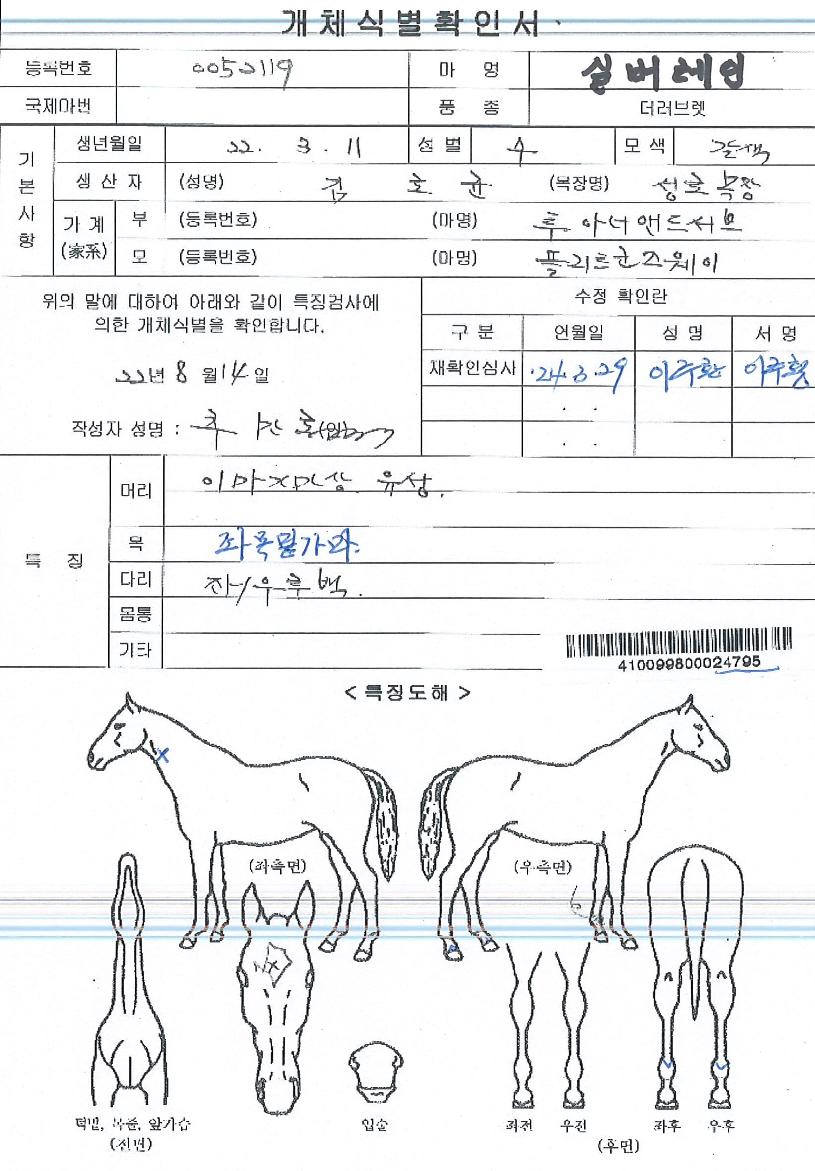 개체식별확인서
등록번호 0052119 마명 실버레인
국제마번 품종 더러브렛
기본사항
생년월일 22. 3. 11 성별 수 모색 갈색
생산자 (성명) 김호균 (목장명) 성호목장
가계(家系) 부 (등록번호) (마명) 투아너앤드서브
모 (등록번호) (마명) 플리트군즈웨이
위의 말에 대하여 아래와 같이 특징검사에
의한 개체식별을 확인합니다.
22년 8월 14일
작성자 성명 :
수정 확인란
구분 연월일 성명 서명
재확인심사 '24.3.29 이주환 이주환
. .
. .
특징
머리 이마 유성.
목 좌목밑가마.
다리 좌/우후백.
몸통
기타
410099800024795
< 특징도해 >
(좌측면) (우측면)
턱밑, 목줄, 앞가슴
(전면)
입술
좌전 우전 좌후 우후
(후면)